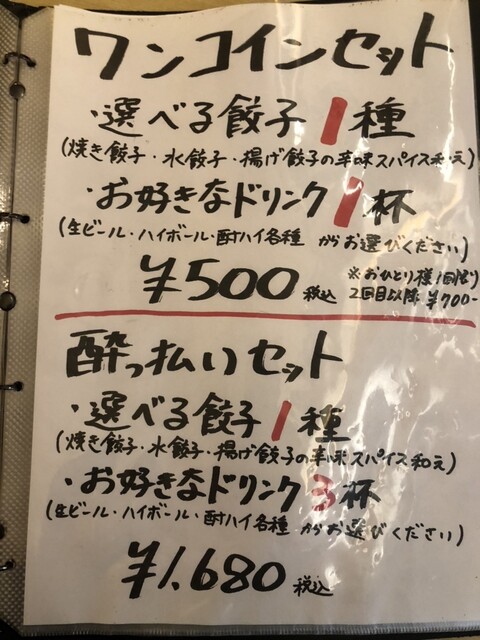 ワンコインセット
・選べる餃子1種
(焼き餃子・水餃子・揚げ餃子の辛味スパイス和え)
・お好きなドリンク1杯
(生ビール・ハイボール・酎ハイ各種 からお選びください)
¥500 税込
※おひとり様1回限り
2回目以降 ¥700-
酔っ払いセット
・選べる餃子1種
(焼き餃子・水餃子・揚げ餃子の辛味スパイス和え)
・お好きなドリンク3杯
(生ビール・ハイボール・酎ハイ各種 からお選びください)
¥1,680 税込